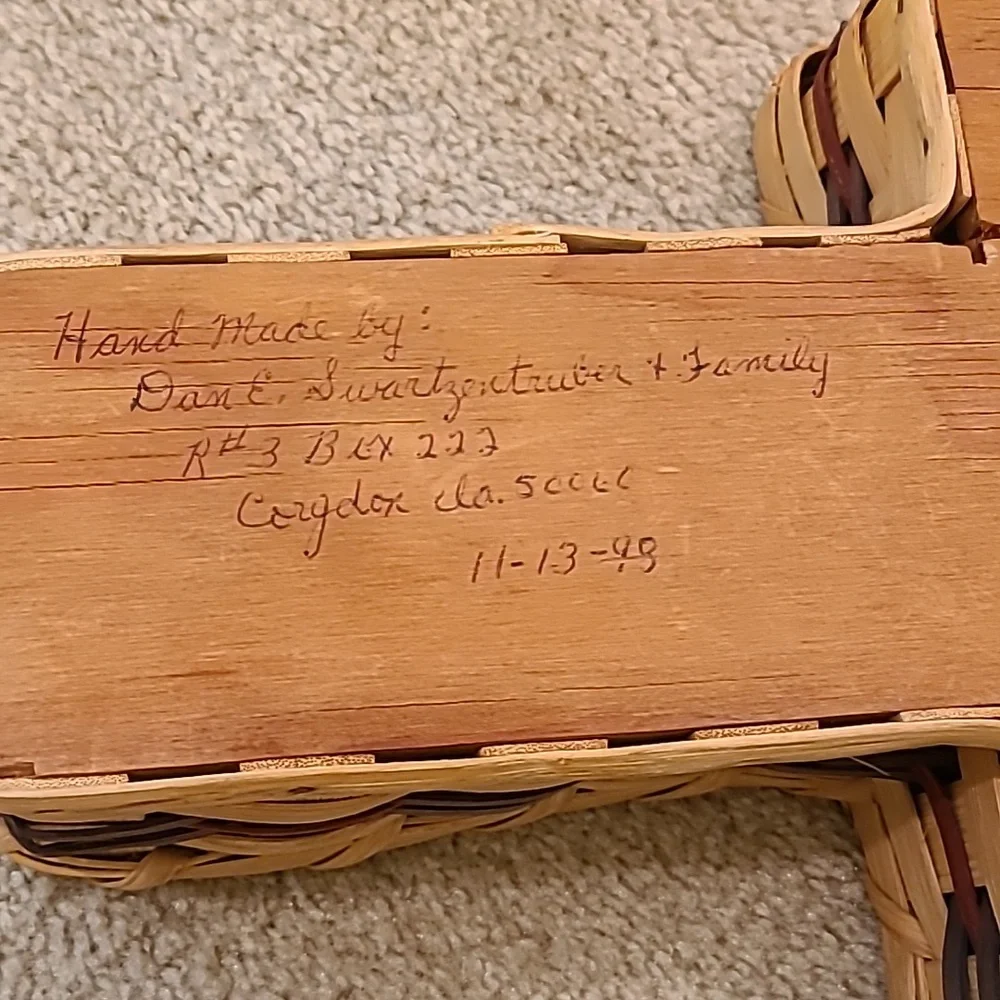 Hand Made by:
Dan E. Swartzentruber + Family
R#3 Box 222
Corydon Ia. 50060
11-13-98